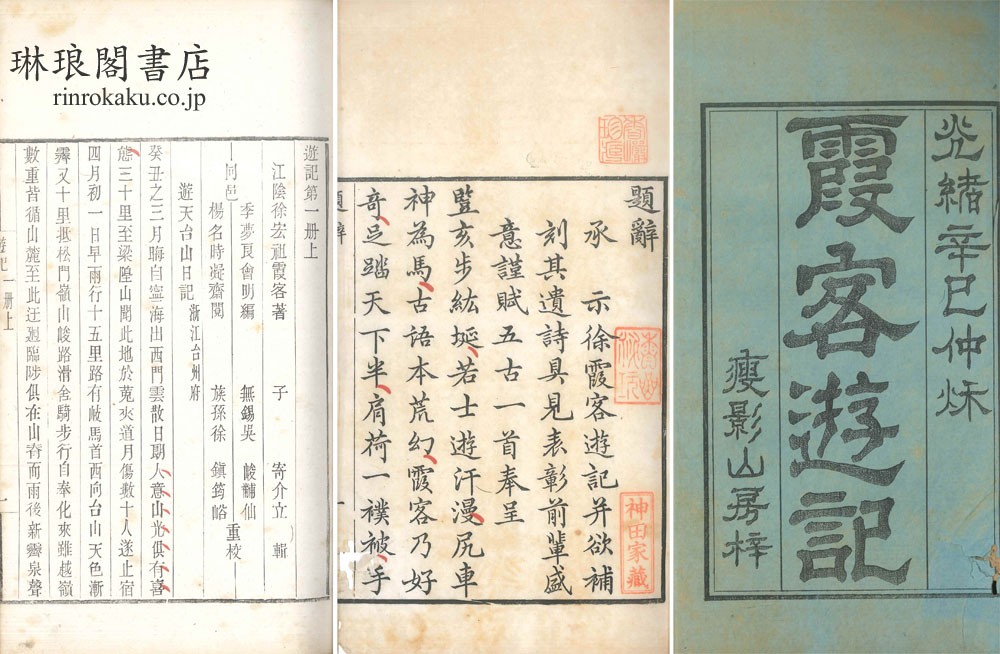 琳琅閣書店
rinrokaku.co.jp
光緒辛巳仲秌
霞客遊記
瘦影山房梓
題辭
承 示徐霞客遊記并欲補
刻其遺詩具見表彰前輩盛
意謹賦五古一首奉呈
豎亥步紘埏若士遊汗漫尻車
神為馬古語本荒幻霞客乃好
奇足踏天下半肩荷一襆被手
題辭 一
神田家藏
遊記第一册上
江陰徐宏祖霞客著 子 寄介立 輯
季夢良會明編 無錫吳 峻黼仙
同邑 重校
楊名時凝齋閱 族孫徐 鎮筠峪
遊天台山日記 浙江台州府
癸丑之三月晦自寧海出西門雲散日朗人意山光俱有喜
態三十里至梁隍山聞此地於菟夾道月傷數十人遂止宿
四月初一日早雨行十五里路有岐馬首西向台山天色漸
霽又十里抵松門嶺山峻路滑舍騎步行自奉化來雖越嶺
數重皆循山麓至此迂迴臨陟俱在山脊而雨後新霽泉聲
遊記一册上 一